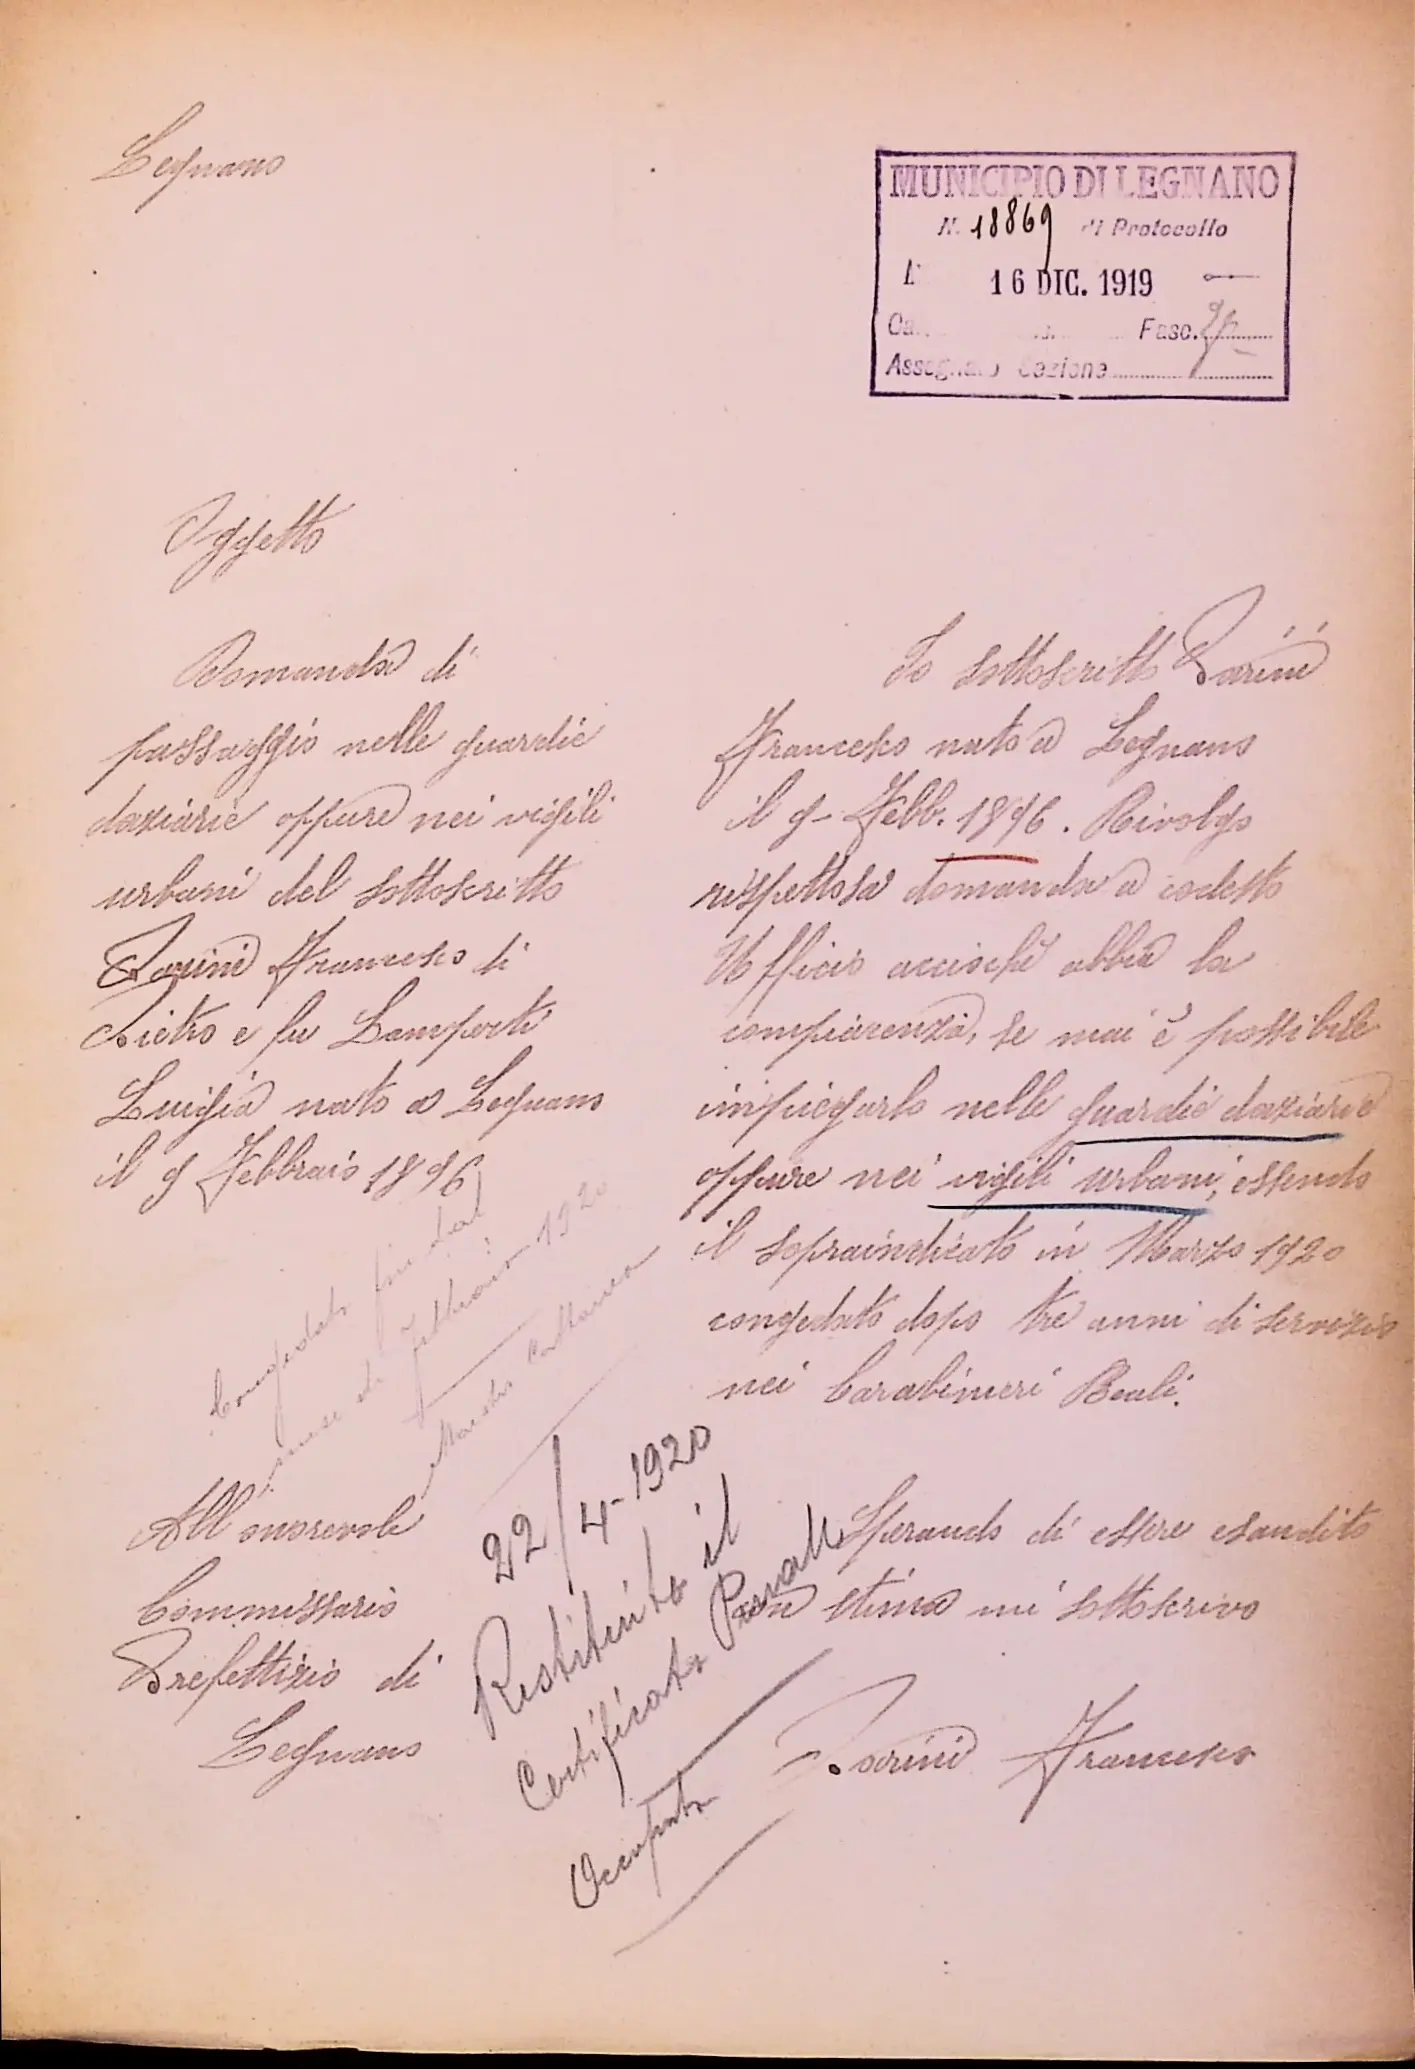 Legnano
MUNICIPIO DI LEGNANO
N. 18869 di Protocollo
16 DIC. 1919
Fasc.
Assegnato Sezione
Oggetto
Domanda di
passaggio nelle guardie
daziarie oppure nei vigili
urbani del sottoscritto
Parini Francesco di
Pietro e fu Lamperti
Luigia nato a Legnano
il 9 Febbraio 1896
Congedato fin dal
mese di Febbraio 1920
All'onorevole
Commissario
Prefettizio di
Legnano
Io sottoscritto Parini
Francesco nato a Legnano
il 9 - Febb. 1896. Rivolgo
rispettosa domanda a codesto
Ufficio acciochè abbia la
compiacenza, se mai è possibile
impiegarlo nelle guardie daziarie
oppure nei vigili urbani, essendo
il sopraindicato in Marzo 1920
congedato dopo tre anni di servizio
nei Carabinieri Reali.
Sperando di essere esaudito
con stima mi sottoscrivo
Parini Francesco
22/4-1920
Restituito il
Certificato Penale
Occupato